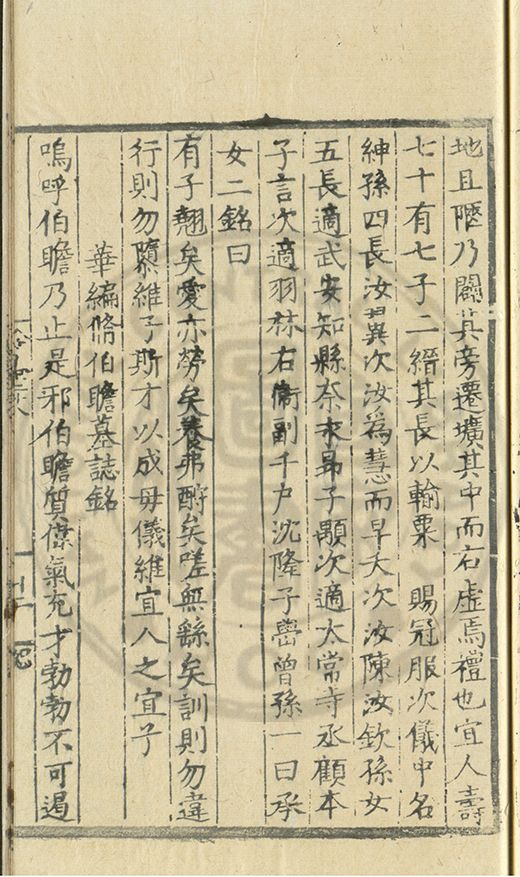 地且陿乃闢其旁遷壙其中而右虛焉禮也宜人壽
七十有七子二縉其長以輸粟　賜冠服次儀中名
紳孫四長汝翼次汝為慧而早夭次汝陳汝欽孫女
五長適武安知縣奈永昻子顒次適太常寺丞顧本
子言次適羽林右衞副千户沈隆子嶨曾孫一曰承
女二銘曰
有子翹矣愛亦勞矣養弗酧矣嗟無繇矣訓則勿違
行則勿隳維子斯才以成母儀維宜人之宜子
華編脩伯瞻墓誌銘
嗚呼伯瞻乃止是邪伯瞻質傑氣充才勃勃不可遏